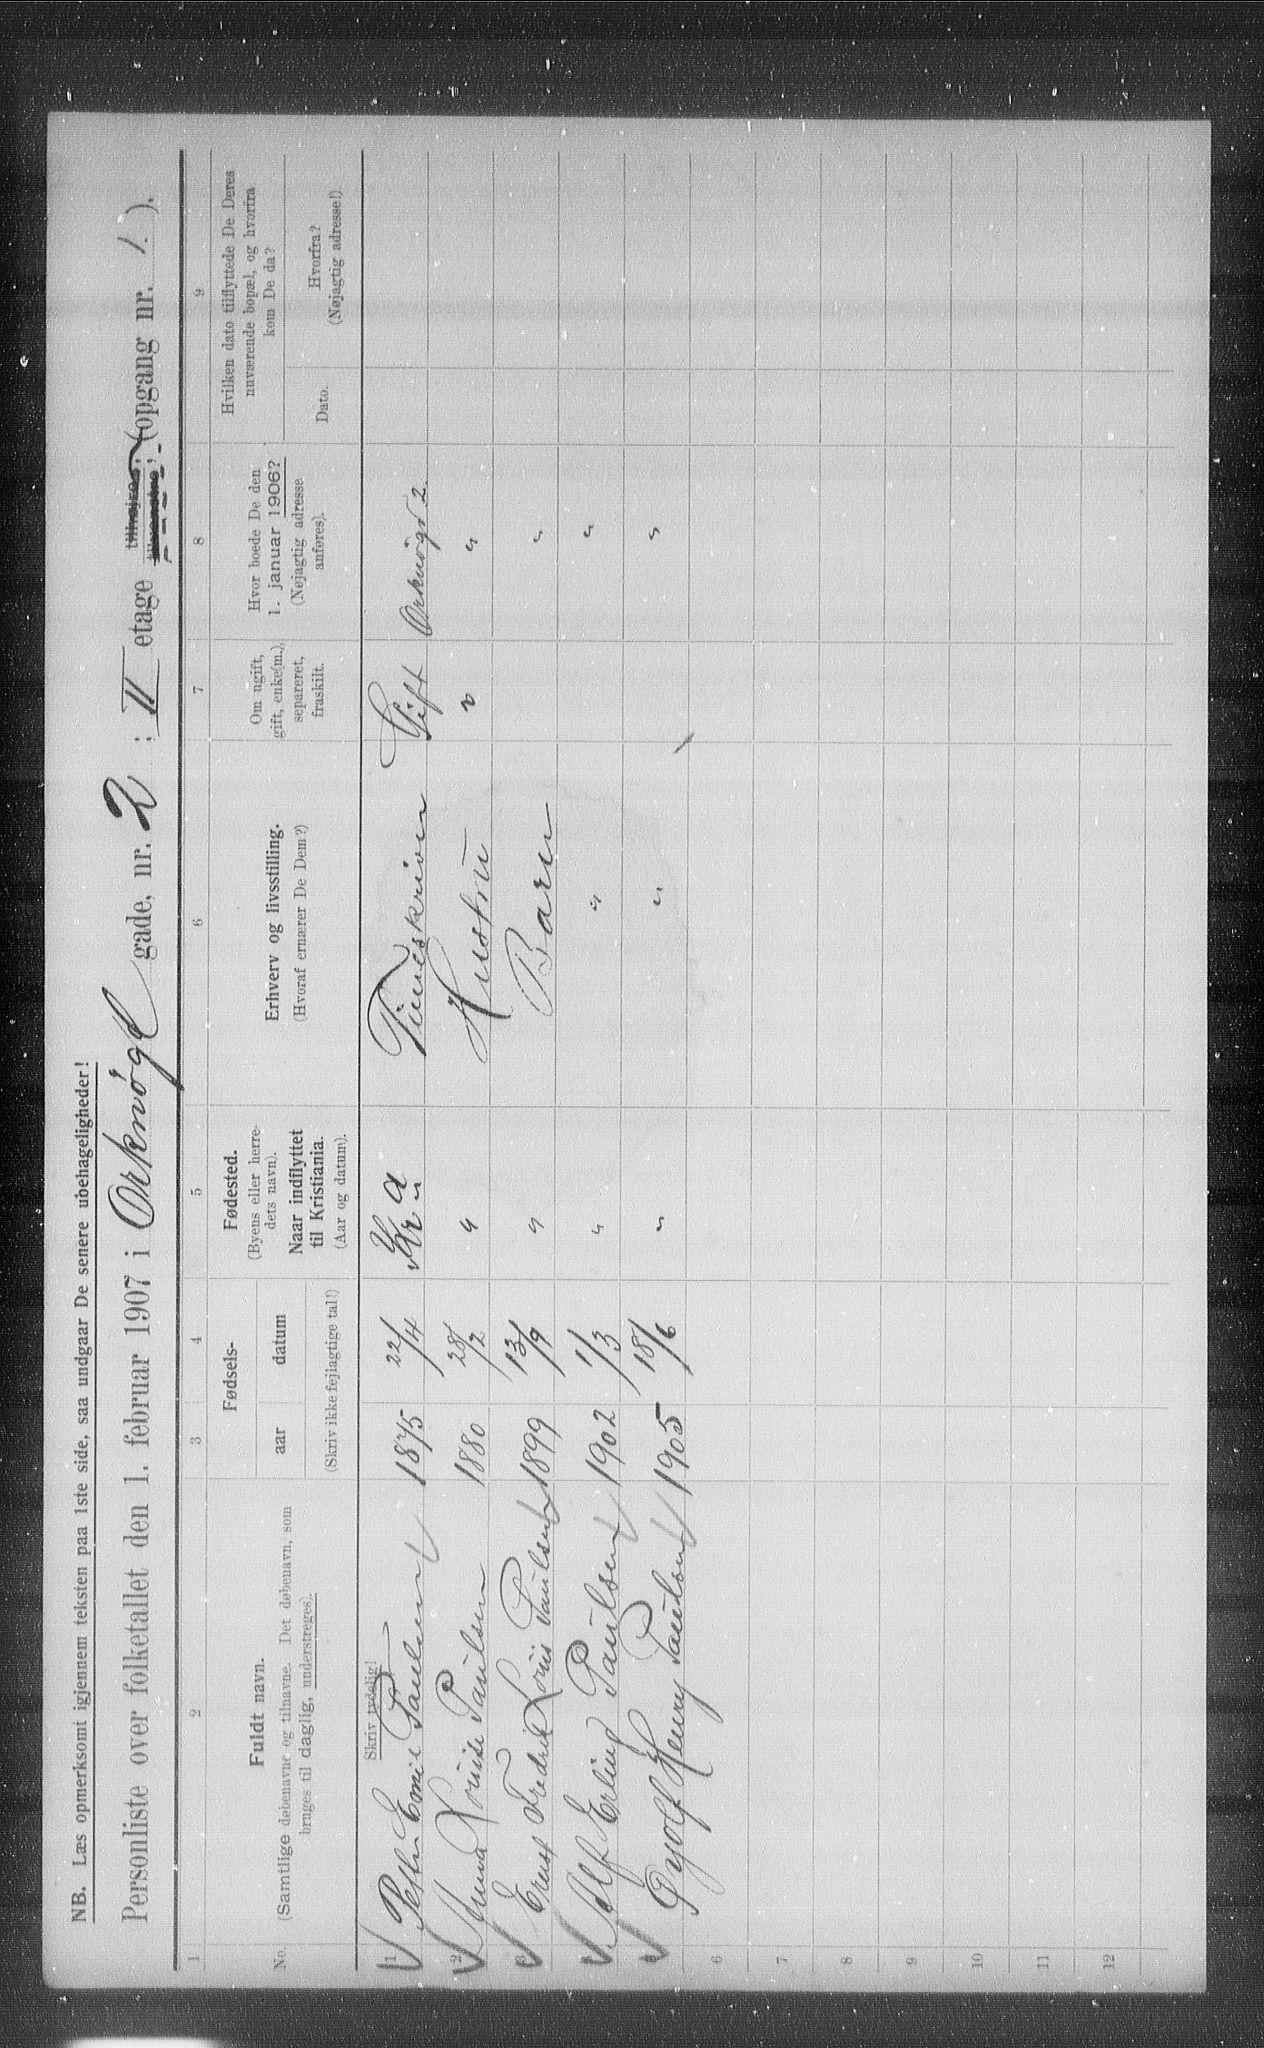 NB. Læs opmerksomt igjennem teksten paa 1ste side, saa undgaar De senere ubehageligheder!
Personliste over folketallet den 1. februar 1907 i Orknögt gade, nr. 2 ; II etage tilhøjre; tilvenstre; (opgang nr. 1. ).
1 2 3 4 5 6 7 8 9
No. Fuldt navn.
(Samtlige døbenavne og tilnavne. Det døbenavn, som
bruges til daglig, understreges).
Fødsels-
aar datum
(Skriv ikke fejlagtige tal!)
Fødested.
(Byens eller herre-
dets navn).
Naar indflyttet
til Kristiania.
(Aar og datum).
Erhverv og livsstilling.
(Hvoraf ernærer De Dem?)
Om ugift,
gift, enke(m.),
separeret,
fraskilt.
Hvor boede De den
1. januar 1906?
(Nøjagtig adresse
anføres).
Hvilken dato tilflyttede De Deres
nuværende bopæl, og hvorfra
kom De da?
Dato. Hvorfra?
(Nøjagtig adresse!)
Skriv tydelig!
1 Emil Paulsen 1875 22/4 Kra Timeskriver Gift Orknögt 2.
2 Anna Louise Paulsen 1880 28/2 " Hustru " "
3 Ernst Fredrik Louis Paulsen 1899 13/9 " Barn "
Alf Erling Paulsen 1902 1/3 " " "
Øyolf Henry Paulsen 1905 18/6 " " "
6
7
8
9
10
11
12